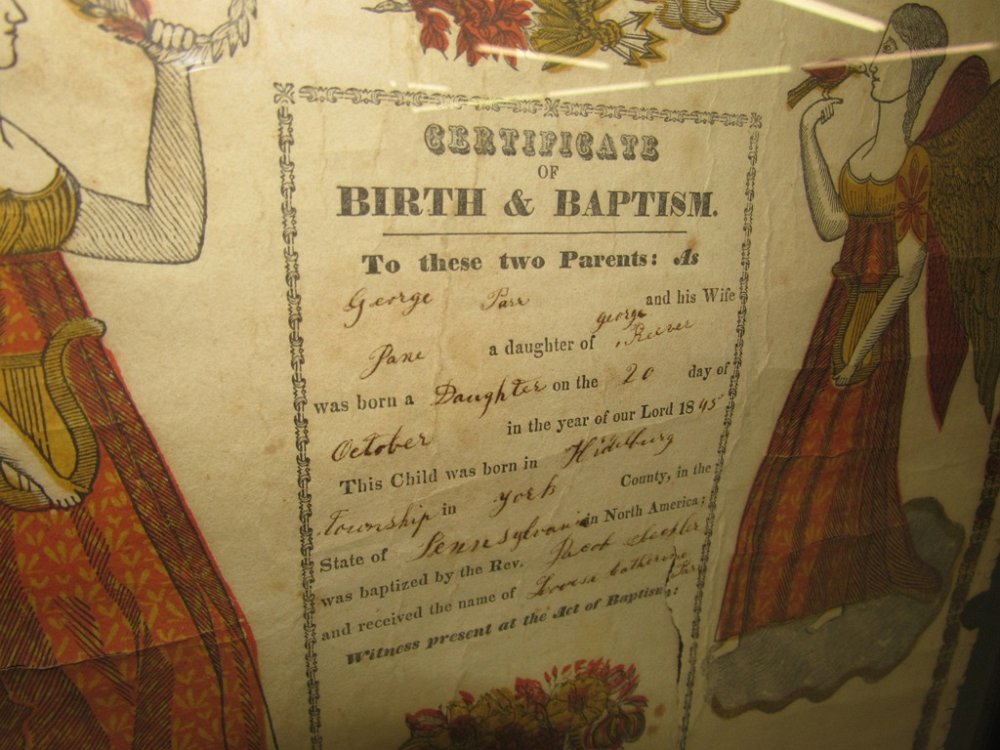 CERTIFICATE
OF
BIRTH & BAPTISM.
To these two Parents: As
George Parr and his Wife
george
Jane a daughter of Reever
was born a Daughter on the 20 day of
October in the year of our Lord 1845
This Child was born in Hidelburg
Township in York County, in the
State of Pennsylvania in North America;
was baptized by the Rev. Jacob
and received the name of Catherine
Parr
Witness present at the Act of Baptism: